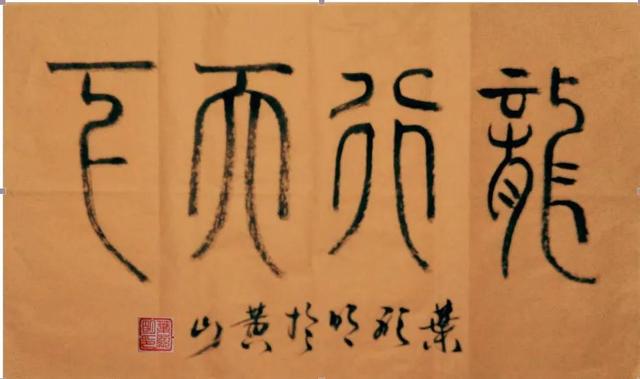 龍行天下
葉 明於黄山